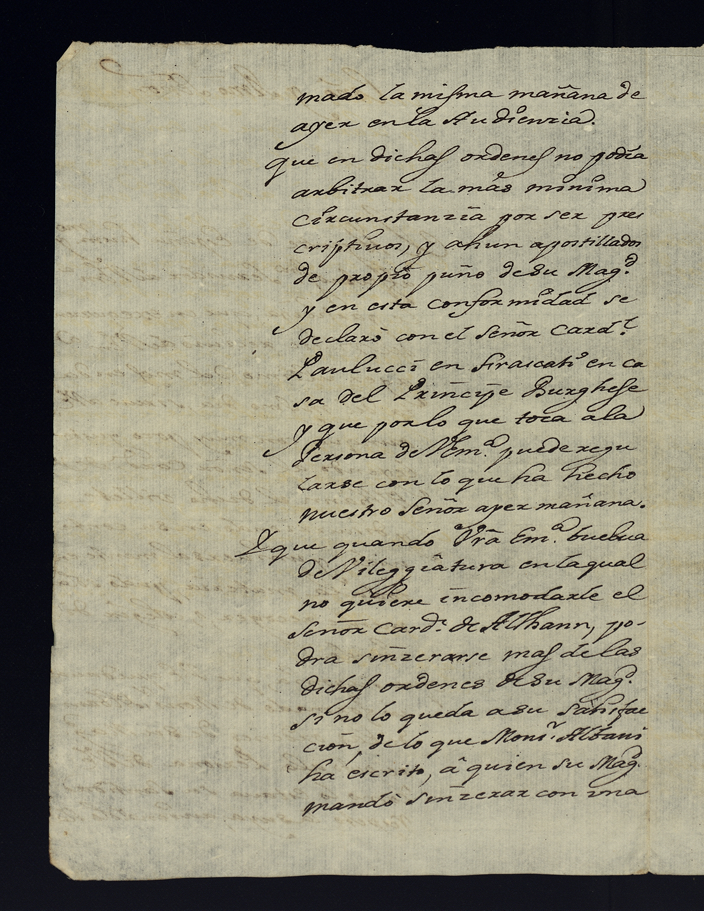 mado la misma mañana de
ayer en la Audienzia.
que en dichas ordenes no podia
arbitrar la mas minima
circunstanzia por ser pres
criptivos, y ahun apostillados
de propio puño de su Mag.d
y en esta conformidad se
declarò con el Señor Card.l
Paulucci en Frascati en ca
sa del Principe Burghese
y que por lo que toca a la
Persona de VEm.a puede regu
larse con lo que ha hecho
nuestro Señor ayer mañana.
Y que quando Vrã Em.a buelua
de Vileggiatura en la qual
no quiere incomodarle el
Señor Card.l de Althann, po-
dra sinzerarse mas de las
dichas ordenes de su Mag.d
si no lo queda a su satisfac
cion, de lo que Mons.r Albani
ha escrito, â quien su Mag.d
mandò sinzerar con una